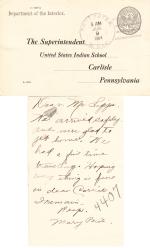 Department of the Interior.
The Superintendent
United States Indian School
Carlisle
Pennsylvania
Dear Mr Lipps
We arrived safely
and were glad to
get home. We
had a fine time
traveling. Hoping
every thing is fine
in dear Carlisle
I remain
Resp.
Mary
4407